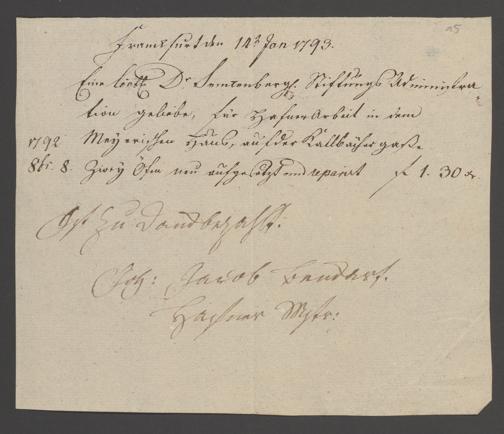 Frankfurt den 14t Jan 1793.
Eine löbl. Dr Senckenbergl. Stiftungs Administra-
tion geliebe, für Hafner Arbeit in dem
1792 Meyerischen Haus, auf der gaße
8br. 8. Zwey Öfen neu aufgesetzt und repariert f 1. 30 x.
Ist zu Danck bezahlt:
Joh: Jacob
Hafner Mstr: